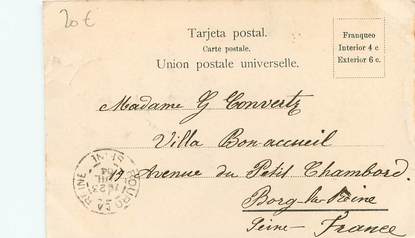 20€
Tarjeta postal.
Carte postale.
Union postale universelle.
Franqueo
Interior 4 c.
Exterior 6 c.
Madame G Convertz
Villa Bon-accueil
17 Avenue du Petit Chambord.
Borg-la-Reine
Seine - France
BOURG LA REINE
SEINE